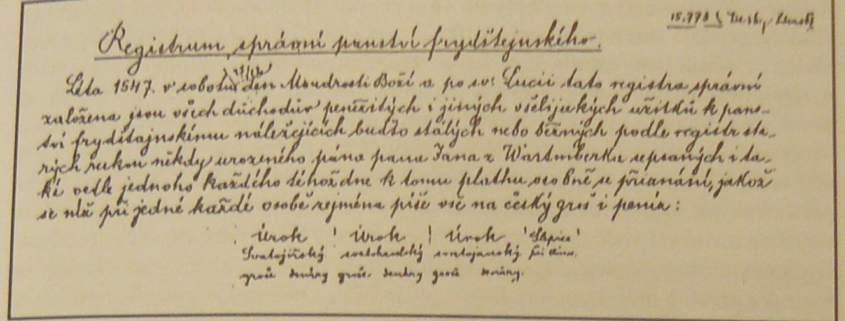 15.778
Registrum správní panství frydštejnského.
Léta 1547. v sobotu den Moudrosti Boží a po sv. Lucii tato registra správní
založena jsou všech důchodův peněžitých i jiných všelijakých užitků k pans-
tví frydštajnskému náležejících buďto stálých nebo běžných podle registr sta-
rých rukou někdy urozeného pána pana Jana z Wartmberka sepsaných i ta-
ké vedle jednoho každého téhož dne k tomu platu osobně se přiznání, jakož
se níž při jedné každé osobě zejména píše vše na český groš i peníz:
Úrok Úrok Úrok Slepice
Svatojiřský svatohavelský svatojanský
groše denáry groše denáry groše denáry.